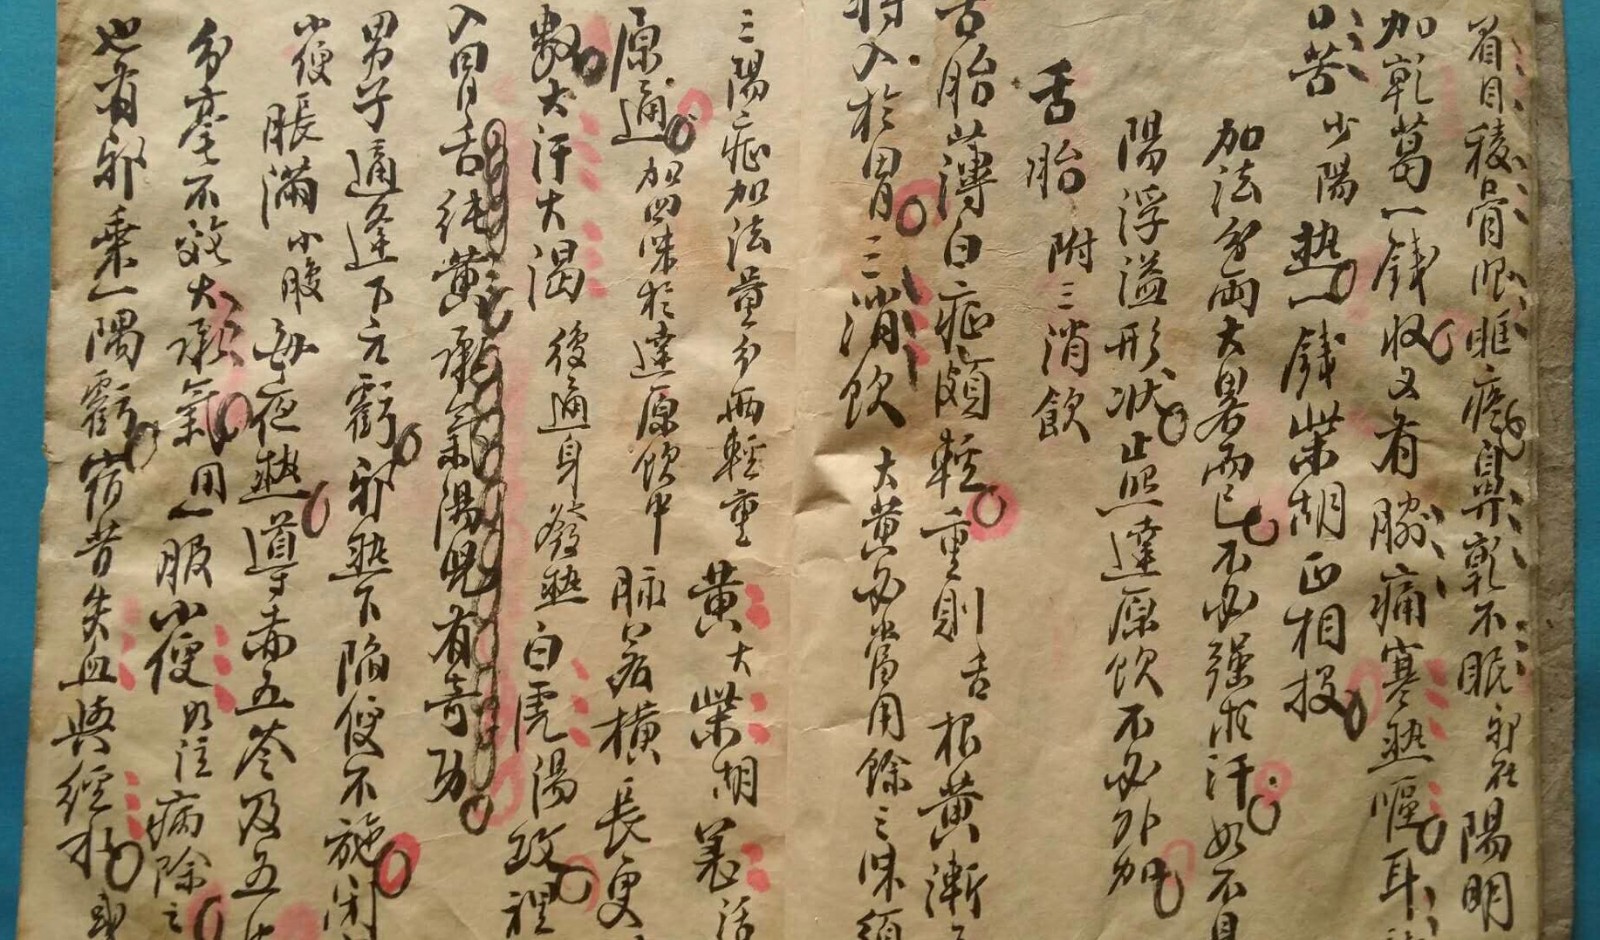 眉目稜骨眼眶痛鼻乾不眠邪在陽明
加乾葛一錢收又有脇痛寒熱嘔耳
口苦少陽熱一錢柴胡正相投
加法分兩大畧而已不必强求汗如不
陽浮溢形狀止照達原飲不必外加
舌胎 附三消飲
舌胎薄白症頗輕重則舌根黃漸
將入於胃三消飲大黃必當用餘三味須
三陽症加法黃分兩輕重 黃大柴胡羗活
原通加四味於達原飲中 脉若橫長更
數大汗大渴後通身發熱白虎湯 裡
入胃舌純黃承氣湯 有奇功
男子適逢下元虧邪熱下陷便不施
小便脹滿小腹 夜熱導赤五苓及五
分毫不效大承氣用一服小便如注病除之
也有邪乘一隅虧宿昔失血與經